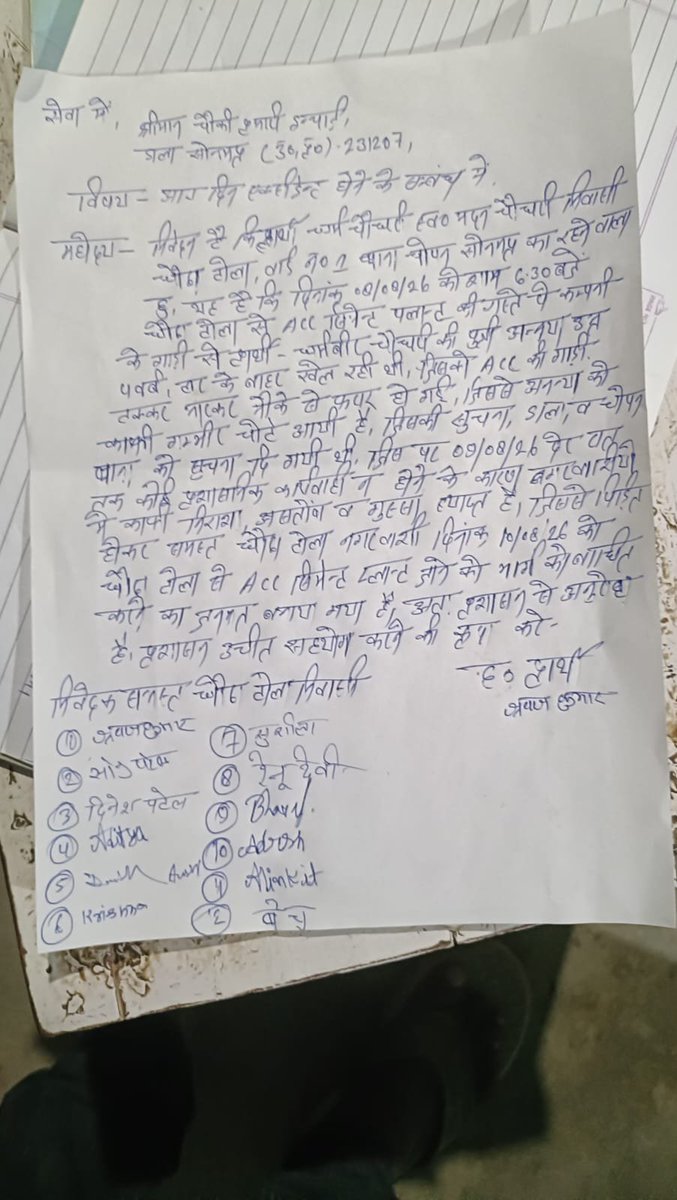 सेवा में,
श्रीमान चौकी प्रभारी
डाला सोनभद्र (उ०प्र०)-231207,
विषय - आए दिन एक्सीडेन्ट होने के सम्बंध में.
महोदय - निवेदन है कि प्रार्थी धर्मवीर चौधरी स्व० मदन चौधरी निवासी
चौरा टोला, वार्ड न० थाना चोपन सोनभद्र का रहने वाला
हु, यह है कि दिनांक 08/08/26 को शाम 6:30 बजे
चौरा टोला से ACC सिमेन्ट प्लान्ट की रास्ते से कम्पनी
के गाड़ी से प्रार्थी - धर्मवीर चौधरी की पुत्री अनन्या उम्र
वर्ष, घर के बाहर खेल रही थी, जिसको ACC की गाड़ी.
टक्कर मारकर मौके से फरार हो गई, जिससे अनन्या को
काफी गम्भीर चोटे आयी है, जिसकी सुचना, डाला, व चोपन
थाना को सूचना दि गयी थी, जिस पर 09/08/26 देर रात
तक कोई प्रशासनिक कार्यवाही न होने के कारण नगरवासीयो
में काफी निराशा, असतोंष व गुस्सा व्याप्त है, जिससे
होकर समस्त चौरा टोला नगरवाशी दिनांक 10/08/26 को
चौरा टोला से ACC सिमेन्ट प्लान्ट जाने को मार्ग को बाधित
करने का बनाया गया है, अतः प्रशासन से अनुरोध
है, प्रशासन उचीत सहयोग करने की कृपा करे-
निवेदक समस्त चौरा टोला निवासी
ह० प्रार्थी
श्रवण कुमार
① श्रवण कुमार
②
③ दिनेश पटेल
④ Aditya
⑤
⑥ Krishna
⑦ सुशीला
⑧ रेनू देवी
⑨
⑩ Adarsh
⑪ Alankrit
⑫ बेचू